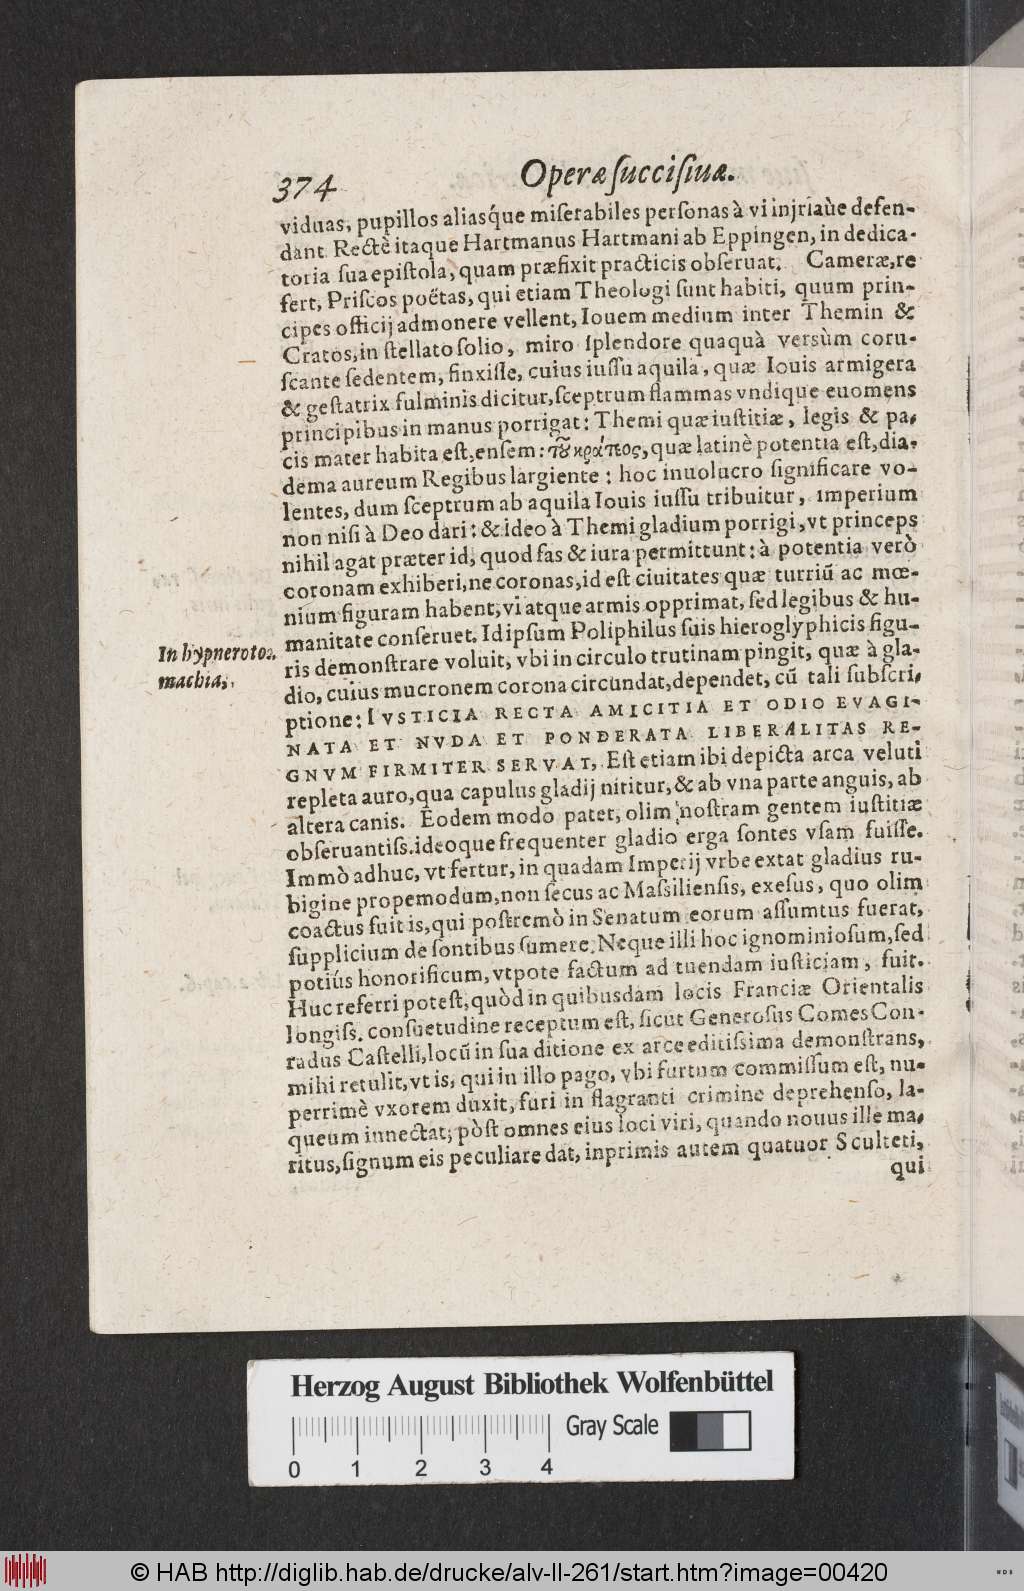 374
Operæ ſucciſiuæ.
viduas, pupillos aliasq́ue miſerabiles perſonas à vi injriaùe defen-
dant. Rectè itaque Hartmanus Hartmani ab Eppingen, in dedica-
toria ſua epiſtola, quam præfixit practicis obſeruat. Cameræ, re
fert, Priſcos poëtas, qui etiam Theologi ſunt habiti, quum prin-
cipes officij admonere vellent, Iouem medium inter Themin &
Cratos, in ſtellato ſolio, miro ſplendore quaquà versùm coru-
ſcante ſedentem, finxiſſe, cuius iuſſu aquila, quæ Iouis armigera
& geſtatrix fulminis dicitur, ſceptrum flammas vndique euomens
principibus in manus porrigat: Themi quæ iuſtitiæ, legis & pa-
cis mater habita eſt, enſem: τȣ͂ κράτεος, quæ latinè potentia eſt, dia-
dema aureum Regibus largiente: hoc inuolucro ſignificare vo-
lentes, dum ſceptrum ab aquila Iouis iuſſu tribuitur, imperium
non niſi à Deo dari: & ideo à Themi gladium porrigi, vt princeps
nihil agat præter id, quod fas & iura permittunt: à potentia verò
coronam exhiberi, ne coronas, id eſt ciuitates quæ turriū ac mœ-
nium figuram habent, vi atque armis opprimat, ſed legibus & hu-
manitate conſeruet. Id ipſum Poliphilus ſuis hieroglyphicis figu-
In hypneroto-
machia.
ris demonſtrare voluit, vbi in circulo trutinam pingit, quæ à gla-
dio, cuius mucronem corona circundat, dependet, cū tali ſubſcri-
ptione: IVSTICIA RECTA AMICITIA ET ODIO EVAGI-
NATA ET NVDA ET PONDERATA LIBERALITAS RE-
GNVM FIRMITER SERVAT, Eſt etiam ibi depicta arca veluti
repleta auro, qua capulus gladij nititur, & ab vna parte anguis, ab
altera canis. Eodem modo patet, olim noſtram gentem iuſtitiæ
obſeruantiſs. ideoque frequenter gladio erga ſontes vſam fuiſſe.
Immò adhuc, vt fertur, in quadam Imperij vrbe extat gladius ru-
bigine propemodum, non ſecus ac Maſsilienſis, exeſus, quo olim
coactus fuit is, qui poſtremò in Senatum eorum aſſumtus fuerat,
ſupplicium de ſontibus ſumere. Neque illi hoc ignominioſum, ſed
potiùs honorificum, vtpote factum ad tuendam iuſticiam, fuit.
Huc referri poteſt, quòd in quibusdam locis Franciæ Orientalis
longiſs. conſuetudine receptum eſt, ſicut Generoſus Comes Con-
radus Caſtelli, locū in ſua ditione ex arce editiſsima demonſtrans,
mihi retulit, vt is, qui in illo pago, vbi furtum commiſſum eſt, nu-
perrimè vxorem duxit, furi in flagranti crimine deprehenſo, la-
queum innectat; pòſt omnes eius loci viri, quando nouus ille ma-
ritus, ſignum eis peculiare dat, inprimis autem quatuor Sculteti,
qui
Herzog August Bibliothek Wolfenbüttel
Gray Scale
0 1 2 3 4
© HAB http://diglib.hab.de/drucke/alv-ll-261/start.htm?image=00420